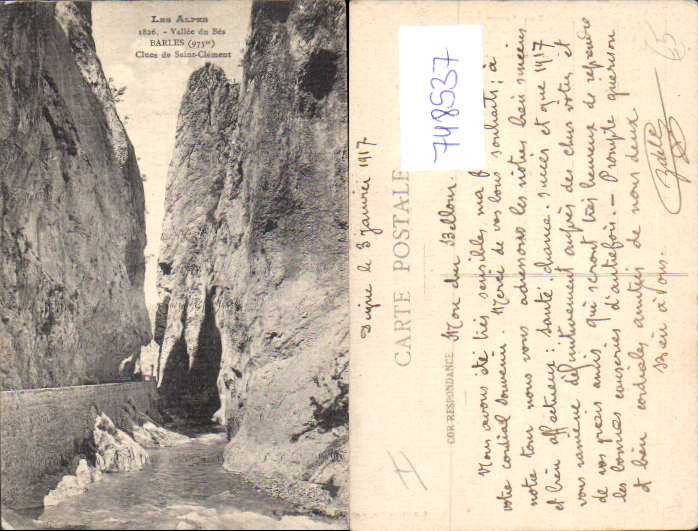 LES ALPES
1826. - Vallée du Bès
BARLES (975m)
Clues de Saint-Clément
748537
CARTE POSTALE
CORRESPONDANCE
Digne le 3 janvier 1917
Mon cher Bellour
Nous avons été très sensibles, ma f
votre cordial souvenir. Merci de vos bons souhaits; à
notre tour nous vous adressons les nôtres bien sincères
et bien affectueux: santé, chance, succès et que 1917
vous ramène définitivement auprès des chers votres et
de vos vrais amis, qui seront très heureux de reprendre
les bonnes causeries d'autrefois. - Prompte guérison
et bien cordiales amitiés de nous deux.
Bien à vous.
65